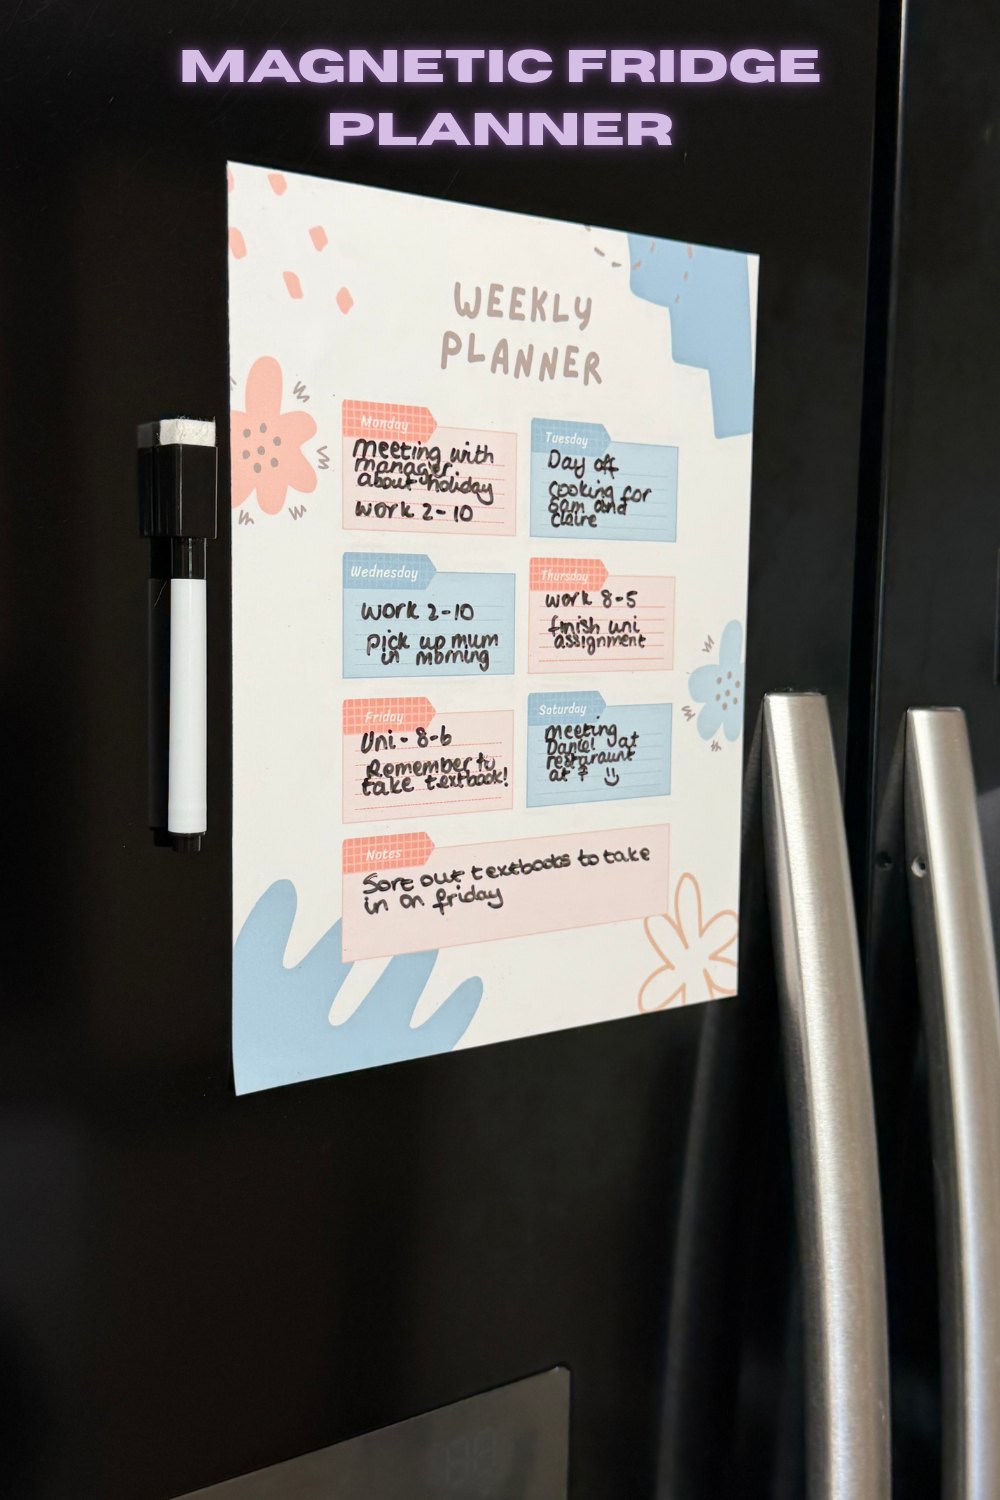 MAGNETIC FRIDGE
PLANNER
WEEKLY
PLANNER
Monday
meeting with
manager
about holiday
work 2-10
Tuesday
Day off
cooking for
Sam and
Claire
Wednesday
work 2-10
pick up mum
in morning
Thursday
work 8-5
finish uni
assignment
Friday
Uni - 8-6
Remember to
take textbook!
Saturday
meeting
Daniel at
restaraunt
at 7
Notes
Sort out textbooks to take
in on friday